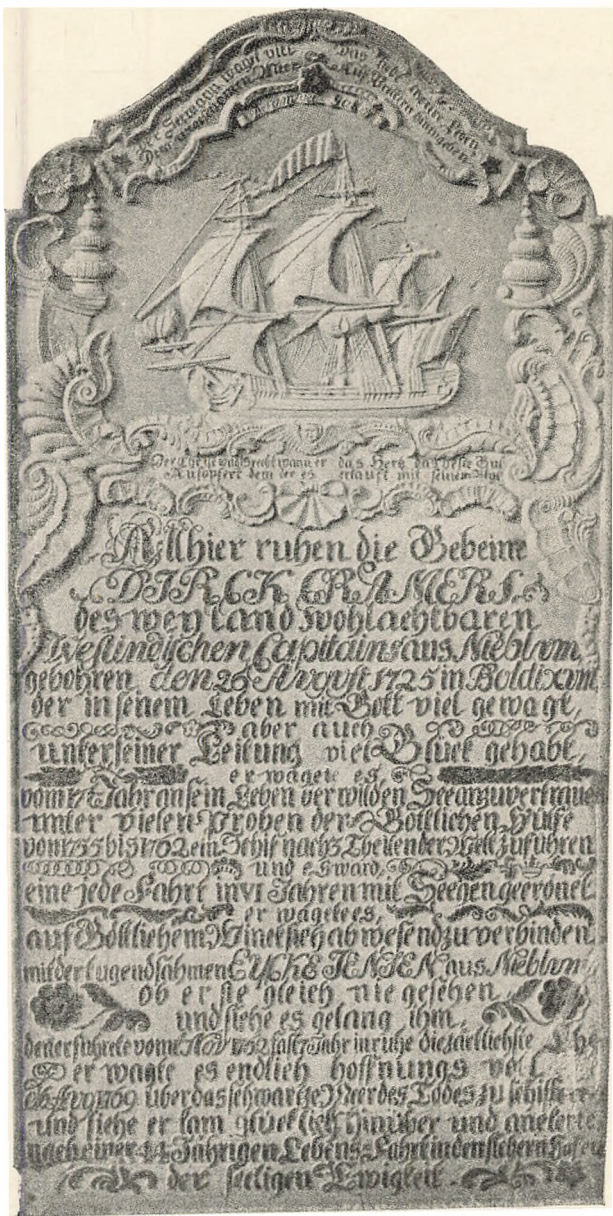 Der Seemann waget viel
Allhier ruhen die Gebeine
DIRCK CRAMERS
des weyland wohlachtbaren
Westindischen Capitains aus Nieblum,
gebohren den 26 August 1725 in Boldixum,
der in seinem Leben mit Gott viel gewagt,
aber auch
unter seiner Leitung viel Glück gehabt,
er wagete es,
vom 17 Jahr an sein Leben der wilden See anzuvertrauen
unter vielen Proben der Göttlichen Hülfe
von 1755 bis 1762 ein Schif nach 3 Theilen der Welt zu führen
und es ward
eine jede Fahrt in VI Jahren mit Seegen gecrönet
er wagete es,
auf Göttlichem Winck sich abwesend zu verbinden
mit der tugendsahmen EYCKE JENSEN aus Nieblum
ob er sie gleich nie gesehen
und siehe es gelang ihm,
den er führete vom Nov 1762 fast 7 Jahr in ruhe die zäetlichste Ehe
er wagte es endlich hoffnungs voll
1769 über das schwartze Meer des Todes zu schiffen
und siehe er kam glücklich hinüber und anckerte
nach einer 44 Jährigen Lebens Fahrt in den sichern Hafen
der seeligen Ewigkeit